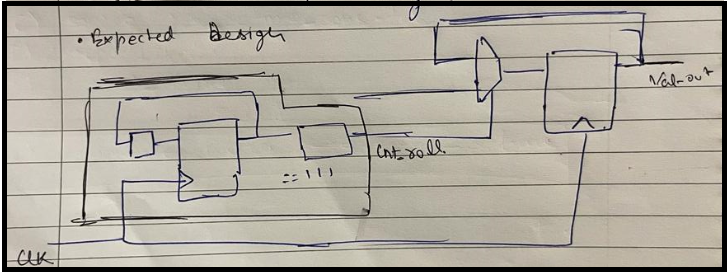 • Expected Design
Val-out
Cnt-roll
==111
CLK